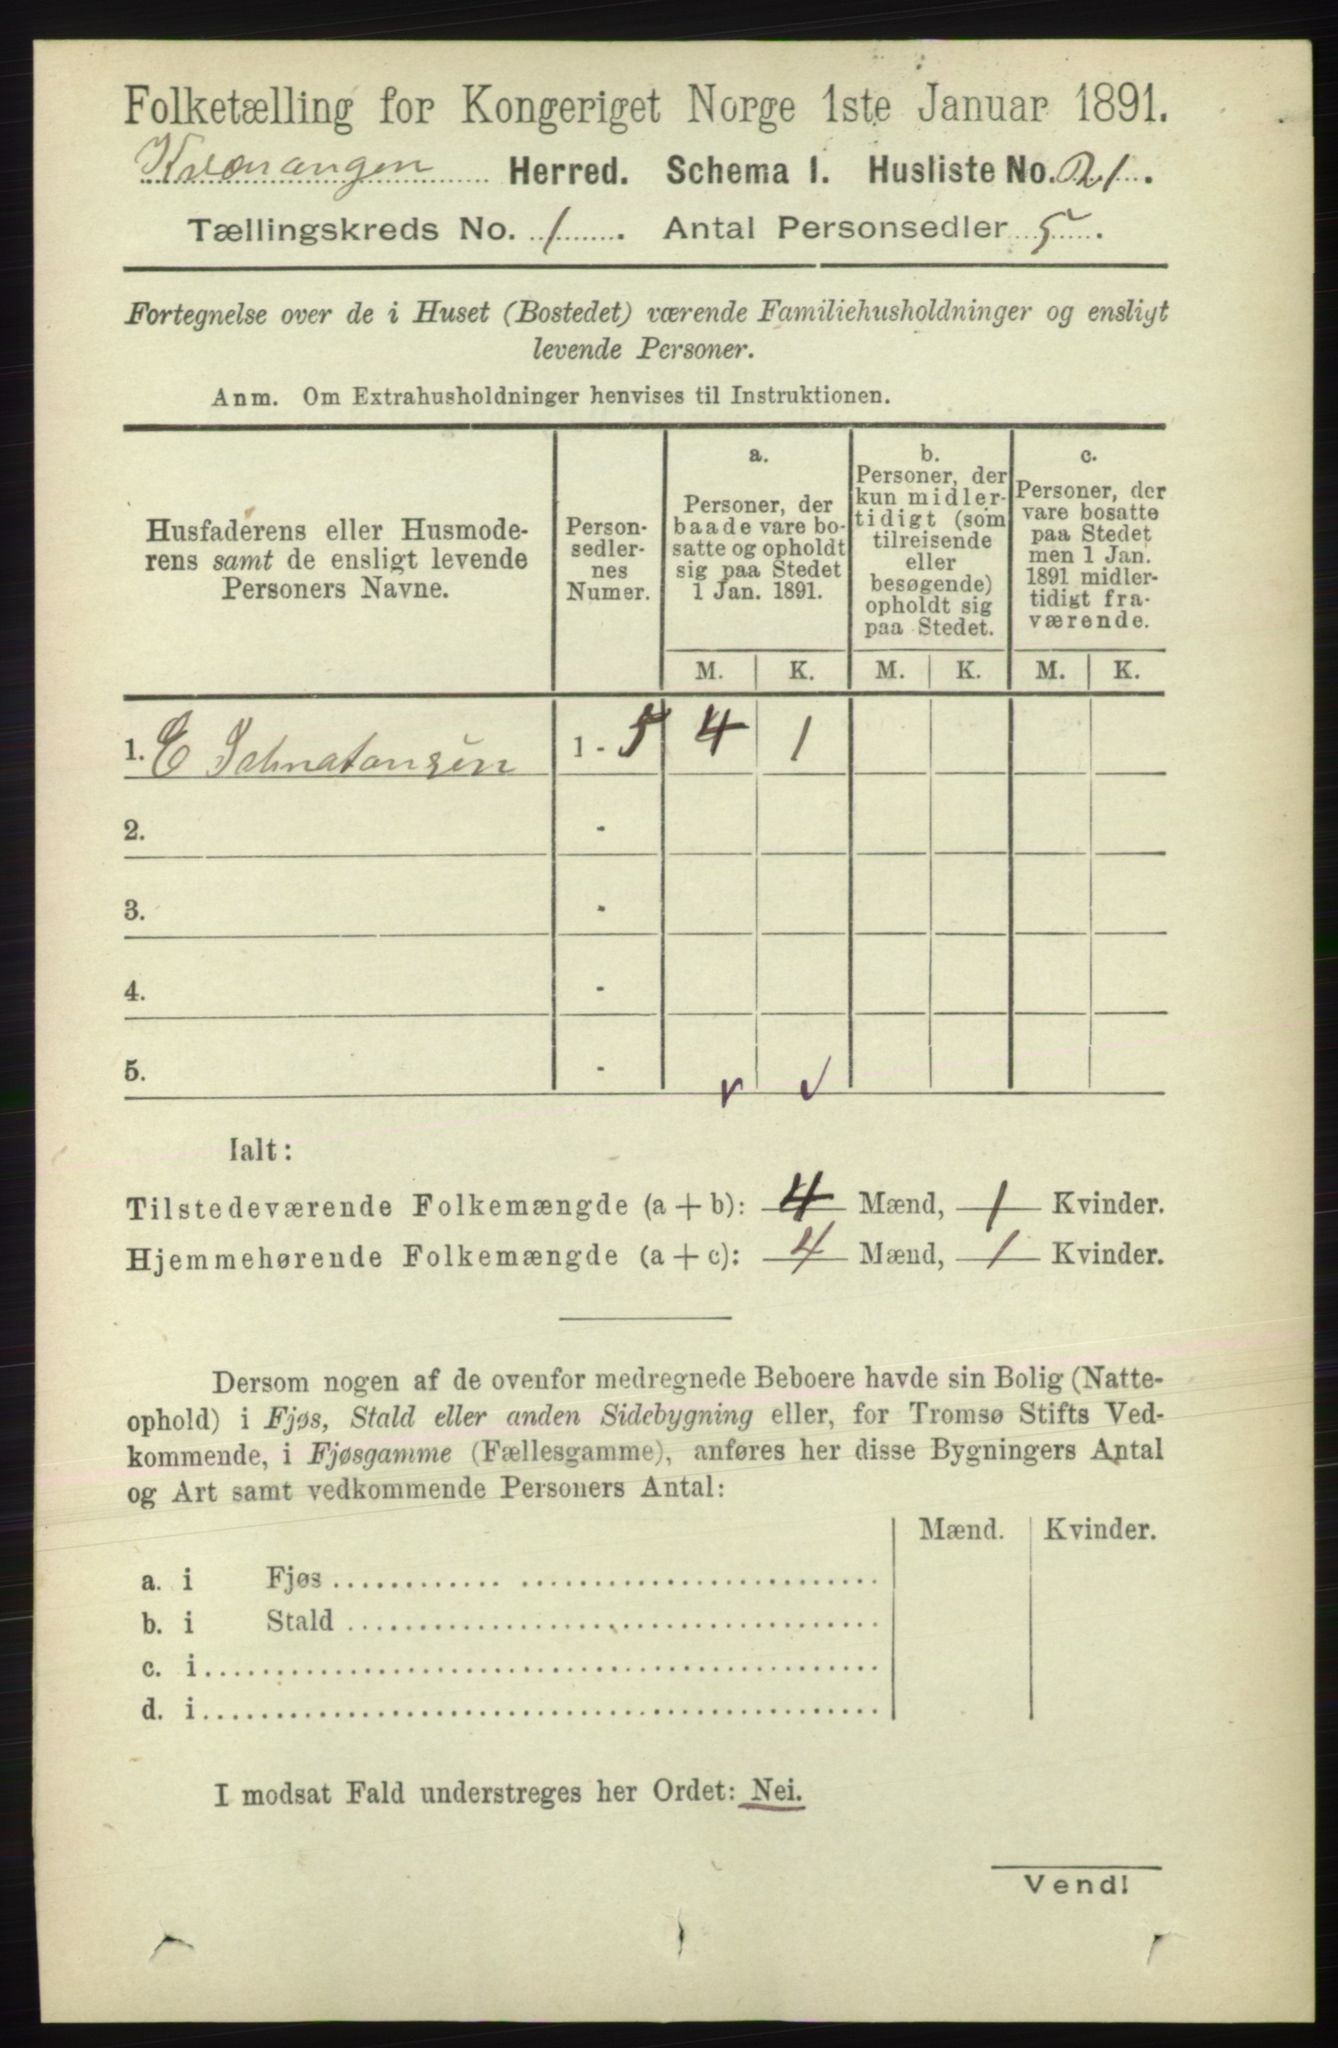 Folketælling for Kongeriget Norge 1ste Januar 1891.
Kvænangen Herred. Schema 1. Husliste No. 21.
Tællingskreds No. 1. Antal Personsedler 5.
Fortegnelse over de i Huset (Bostedet) værende Familiehusholdninger og ensligt
levende Personer.
Anm. Om Extrahusholdninger henvises til Instruktionen.
Husfaderens eller Husmode-
rens samt de ensligt levende
Personers Navne.
Person-
sedler-
nes
Numer.
a.
Personer, der
baade vare bo-
satte og opholdt
sig paa Stedet
1 Jan. 1891.
b.
Personer, der
kun midler-
tidigt (som
tilreisende
eller
besøgende)
opholdt sig
paa Stedet.
c.
Personer, der
vare bosatte
paa Stedet
men 1 Jan.
1891 midler-
tidigt fra-
værende.
M. K. M. K. M. K.
1. E Johnatansen 1 - 5 4 1
2. -
3. -
4. -
5. -
Ialt:
Tilstedeværende Folkemængde (a + b): 4 Mænd, 1 Kvinder.
Hjemmehørende Folkemængde (a + c): 4 Mænd, 1 Kvinder.
Dersom nogen af de ovenfor medregnede Beboere havde sin Bolig (Natte-
ophold) i Fjøs, Stald eller anden Sidebygning eller, for Tromsø Stifts Ved-
kommende, i Fjøsgamme (Fællesgamme), anføres her disse Bygningers Antal
og Art samt vedkommende Personers Antal:
Mænd. Kvinder.
a. i Fjøs
b. i Stald
c. i
d. i
I modsat Fald understreges her Ordet: Nei.
Vend!